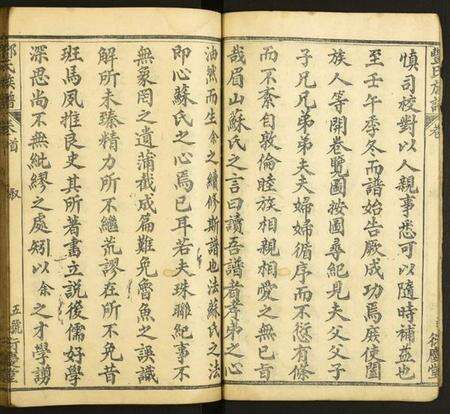 慎司校對以人親事悉可以隨時補益也
至壬午季冬而譜始告厥成功焉庶使闔
族人等開卷覽圖按圖尋紀見夫父父子
子兄兄弟弟夫夫婦婦循序而不愆有條
而不紊自敦倫睦族相親相愛之無
哉眉山蘇氏之言曰讀吾譜者孝弟之心
油然而生余之續修斯譜也法蘇氏之法
即心蘇氏之心焉已耳若夫珠聯紀事不
無象罔之遺蒲截成篇難免魯魚之誤識
解所未臻精力所不繼荒謬在所不免昔
班馬夙推良史其所著書立說後儒好學
深思尚不無紕繆之處矧以余之才學謭
氏族譜 卷首 敘 五